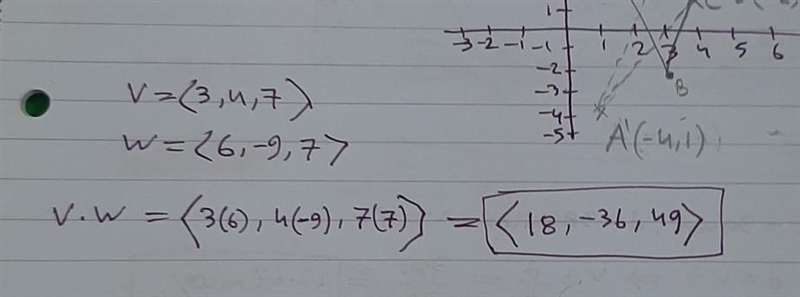 1
-3 -2 -1 -1 1 2 3 4 5 6
-2
B
-3
-4
-5
A'(-4,1)
V = ⟨3, 4, 7⟩
W = ⟨6, -9, 7⟩
V · W = ⟨3(6), 4(-9), 7(7)⟩ = ⟨18, -36, 49⟩